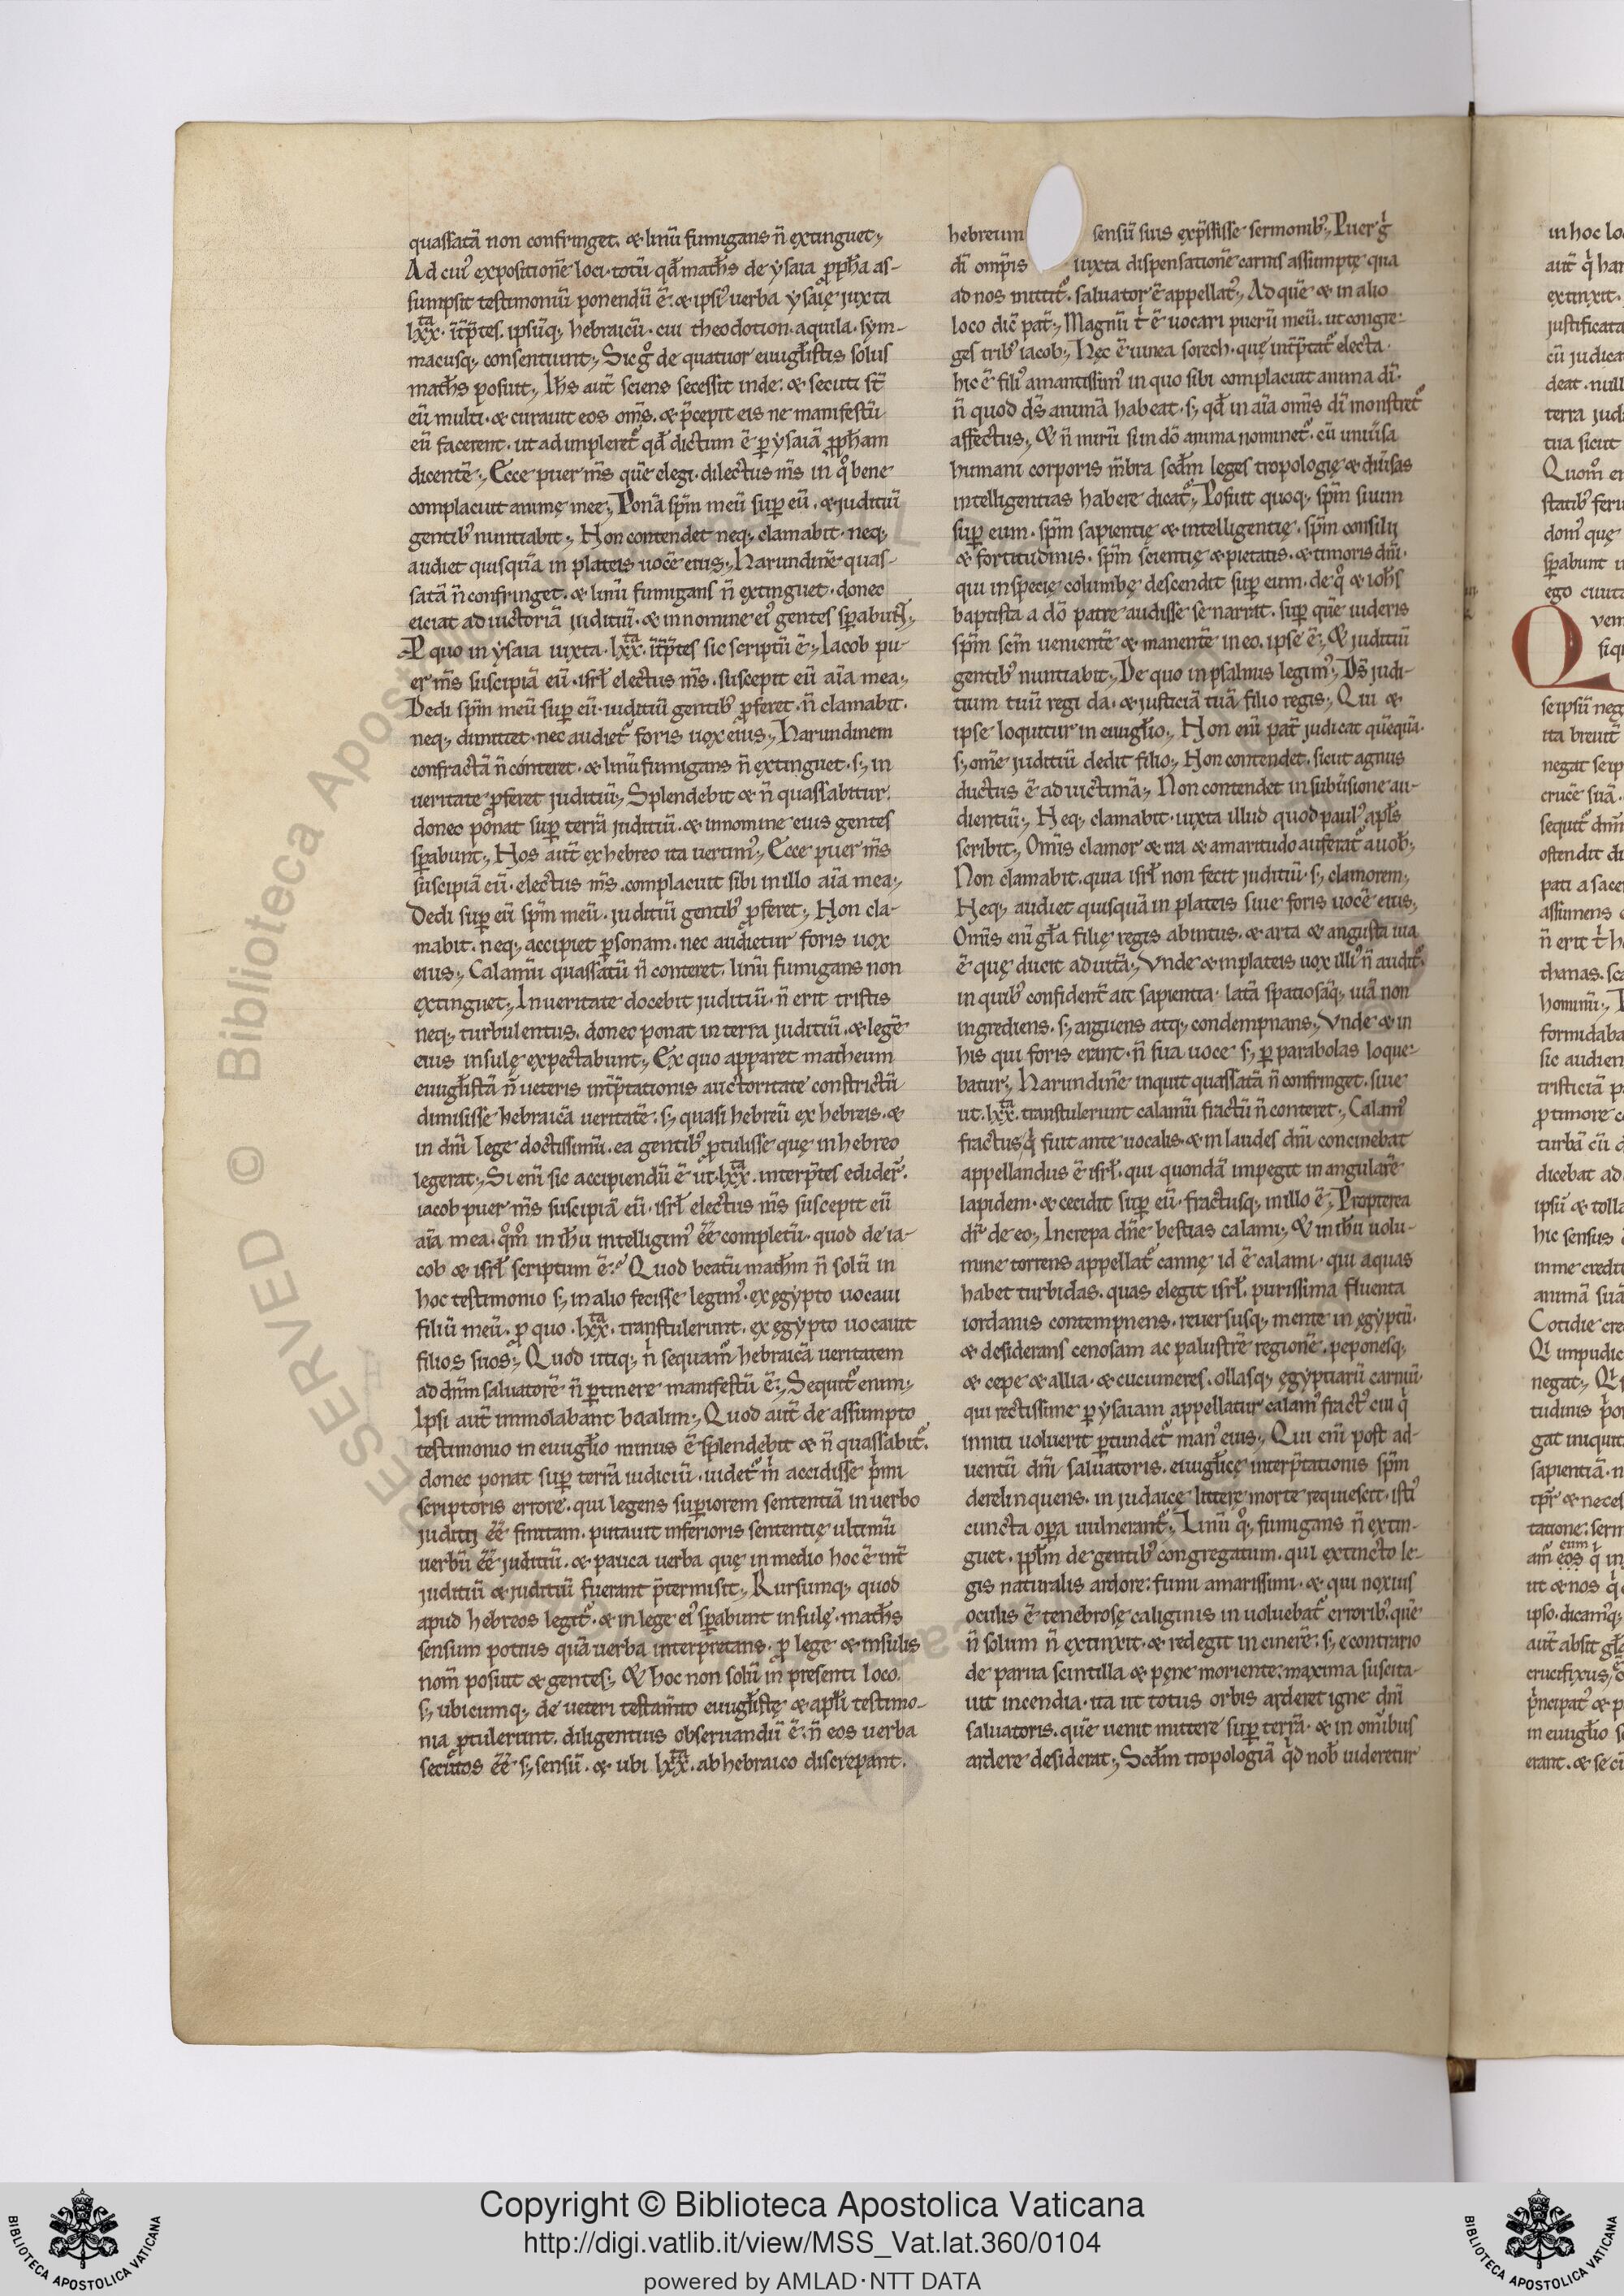 quassatā non confringet. & linū fumigans n̄ extinguet;
Ad cui᾽ expositionē loci. totū qđ math̄s de ysaia ꝓph̄a as-
sumpsit testimoniū ponendū ē. & ipsi᾽ uerba ysaię iuxta
lxx^ta. īt̄p̄tes. ipsūq; hebraicū. cui theodotion. aquila. sym-
macusq; consentiunt; Sic g° de quatuor euuḡlistis solus
math̄s posuit; Ih̄s aut̄ sciens secessit inde: & secuti st̄
eū multi. & curauit eos om̄s. & p̄cepit eis ne manifestū
eū facerent. ut adimpleret᾽ qđ dictum ē ꝑ ysaiā ꝓph̄am
dicentē; Ecce puer m̄s quē elegi. dilectus m̄s in q° bene
complacuit animę meę; Ponā sp̄m meū suꝑ eū. & juditiū
gentib᾽ nuntiabit; Non contendet neq; clamabit. neq;
audiet quisquā in plateis uocē eius; Harundinē quas-
satā n̄ confringet. & linū fumigans n̄ extinguet. donec
eiciat ad uictoriā juditiū. & in nomine ei᾽ gentes sꝑabunt;
P quo in ysaia iuxta. lxx^ta. īt̄p̄tes sic scriptū ē; Iacob pu-
er m̄s suscipiā eū. isrł electus m̄s. suscepit eū aīa mea;
Dedi sp̄m meū suꝑ eū. iuditiū gentib᾽ ꝓferet. n̄ clamabit.
neq; dimittet. nec audiet᾽ foris uox eius; Harundinem
confractā n̄ conteret. & linū fumigans n̄ extinguet. s; in
ueritate ꝓferet juditiū; Splendebit & n̄ quassabitur.
donec ponat suꝑ terrā juditiū. & in nomine eius gentes
sꝑabunt; Nos aut̄ ex hebreo ita uertim᾽; Ecce puer m̄s
suscipiā eū. electus m̄s. complacuit sibi in illo aīa mea;
Dedi suꝑ eū sp̄m meū. juditiū gentib᾽ ꝓferet; Non cla-
mabit. neq; accipiet ꝑsonam. nec audietur foris uox
eius; Calamū quassatū n̄ conteret. linū fumigans non
extinguet; In ueritate docebit juditiū. n̄ erit tristis
neq; turbulentus. donec ponat in terra juditiū. & legē
eius insulę expectabunt; Ex quo apparet matheum
euuḡlistā n̄ ueteris int̄p̄tationis auctoritate constrictū
dimisisse hebraicā ueritatē. s; quasi hebreū ex hebreis. &
in dn̄i lege doctissimū. ea gentib᾽ ꝓtulisse quę in hebreo
legerat; Si eni sic accipiendū ē ut. lxx^ta. interp̄tes edider̄.
iacob puer m̄s suscipiā eū. isrł electus m̄s suscepit eū
aīa mea. q°m° in ih̄u intelligim᾽ ēē completū. quod de ia-
cob & isrł scriptum ē? Quod beatū math̄m n̄ solū in
hoc testimonio s; in alio fecisse legim᾽. ex ęgypto uocaui
filiū meū. ꝓ quo. lxx^ta. transtulerunt. ex ęgypto uocauit
filios suos; Quod utiq; n^i sequam᾽ hebraicā ueritatem
ad dn̄m saluatorē n̄ ꝑtinere manifestū ē; Sequit᾽ enim;
Ipsi aut̄ immolabant baalim; Quod aut̄ de assumpto
testimonio in euuḡlio minus ē splendebit & n̄ quassabit᾽.
donec ponat suꝑ terrā iudiciū. uidet᾽ m^i accidisse p^imi
scriptoris errore. qui legens suꝑiorem sententiā in uerbo
juditij ēē finitam. putauit inferioris sententię ultimū
uerbū ēē juditiū. & pauca uerba quę in medio hoc ē int̄
juditiū & juditiū fuerant p̄termisit; Rursumq; quod
apud hebreos legit᾽. & in lege ei᾽ sꝑabunt insulę. math̄s
sensum potius quā uerba interpretans. ꝓ lege & insulis
nom̄ posuit & gentes; Et hoc non solū in presenti loco.
s; ubicumq; de ueteri testam̄to euuḡlistę & apl̄i testimo-
nia ꝓtulerunt. diligentius obseruandū ē. n̄ eos uerba
secutos ēē s; sensū. & ubi lxx^ta. ab hebraico discrepant.
hebreum sensū suis exp̄ssisse sermonib᾽; Puer g°
dī omp̄is iuxta dispensationē carnis assumptę qua
ad nos mittit᾽. saluator ē appellat᾽; Ad quē & in alio
loco dic̄ pat̄; Magnū t^i ē uocari puerū meū. ut congre-
ges trib᾽ iacob; Hęc ē uinea sorech. quę int̄p̄tat᾽ electa.
hic ē fili᾽ amantissim᾽ in quo sibi complacuit anima dī.
n̄ quod ds̄ animā habeat. s; qđ in aīa om̄is dī monstret᾽
affectus; Et n̄ mirū si in dō anima nominet᾽. cū uniūsa
humani corporis m̄bra scđm leges tropologię & diūsas
intelligentias habere dicat᾽; Posuit quoq; sp̄m suum
suꝑ eum. sp̄m sapientię & intelligentię. sp̄m consilij
& fortitudinis. sp̄m scientię & pietatis. & timoris dn̄i.
qui in specie columbę descendit suꝑ eum. de q° & ioh̄s
baptista a dō patre audisse se narrat. suꝑ quē uideris
sp̄m sc̄m uenientē & manentē in eo. ipse ē; Et juditiū
gentib᾽ nuntiabit; De quo in psalmis legim᾽; Ds̄ judi-
tium tuū regi da. & justiciā tuā filio regis; Qui &
ipse loquitur in euuḡlio; Non eni pat̄ judicat quēquā.
s; omē juditiū dedit filio; Non contendet. sicut agnus
ductus ē ad uictimā; Non contendet in subūsione au-
dientiū; Neq; clamabit. iuxta illud quod paul᾽ apl̄s
scribit; Om̄is clamor & ira & amaritudo auferat᾽ a uob̄;
Non clamabit. quia isrł non fecit juditiū. s; clamorem;
Neq; audiet quisquā in plateis siue foris uocē eius;
Om̄is eni gl̄a filię regis ab intus. & arta & angusta uia
ē quę ducit ad uitā; Vnde & in plateis uox illi᾽ n̄ audit᾽.
in quib᾽ confident̄ ait sapientia. latā spatiosāq; uiā non
ingrediens. s; arguens atq; condempnans; Vnde & in
his qui foris erant. n̄ sua uoce s; ꝑ parabolas loque-
batur; Harundinē inquit quassatā n̄ confringet. siue
ut. lxx^ta. transtulerunt calamū fractū n̄ conteret; Calam᾽
fractus q^i fuit ante uocalis. & in laudes dn̄i concinebat
appellandus ē isrł. qui quondā impegit in angularē
lapidem. & cecidit suꝑ eū. fractusq; in illo ē; Propterea
dr̄ de eo; Increpa dn̄e bestias calami; Et in ih̄u uolu-
mine torrens appellat᾽ cannę id ē calami. qui aquas
habet turbidas. quas elegit isrł. purissima fluenta
iordanis contempnens. reuersusq; mente in ęgyptū.
& desiderans cenosam ac palustrē regionē. peponesq;
& cepe & allia. & cucumeres. ollasq; ęgyptiarū carniū.
qui rectissime ꝑ ysaiam appellatur calam᾽ fract᾽ cui q^i
inniti uoluerit ꝑtundet᾽ man᾽ eius; Qui eni post ad-
uentū dn̄i saluatoris. euuḡlicę interp̄tationis sp̄m
derelinquens. in judaicę litterę morte requiescit. isti᾽
cuncta oꝑa uulnerant᾽; Linū q°; fumigans n̄ extin-
guet. ppl̄m de gentib᾽ congregatum. qui extincto le-
gis naturalis ardore: fumi amarissimi. & qui noxius
oculis ē tenebrosę caliginis inuoluebat᾽ errorib᾽. quē
n̄ solum n̄ extinxit. & redegit in cinerē: s; e contrario
de parua scintilla & pęne moriente: maxima suscita-
uit incendia. ita ut totus orbis arderet igne dn̄i
saluatoris. quē uenit mittere suꝑ terrā. & in omībus
ardere desiderat; Scđm tropologiā q^id nob̄ uideretur
in hoc lo
aut̄ q^i ha
extinxit.
justificata
cū judica
deat. null
terra jud
tua sicut
Quom° e
statib᾽ feri
dom᾽ quę
sꝑabunt i
ego ciuita
Q vem
siqu
se ipsū neg
ita breuit̄
negat se ip
crucē suā.
sequit᾽ dn̄m
ostendit di
pati a sace
assumens
n̄ erit t^i h
thanas. sc
hominū;
formidaba
sic audien
tristiciā p
ꝓ timore c
turbā cū d
dicebat ad
ipsū & tolla
hic sensus
in me credi
animā suā
Cotidie cre
Q^i impudic
negat; Q^i
tudinis
gat iniquit
sapientiā.
& neces
tatione: serm
eum
eos q^i in
ut & nos q^i
ipso. dicamq;
aut̄ absit gl̄
crucifixus
p^incipat᾽ & p
in euuḡlio s
erant. & se cū
© Biblioteca Apostolica Vaticana
RESERVED
Copyright © Biblioteca Apostolica Vaticana
http://digi.vatlib.it/view/MSS_Vat.lat.360/0104
powered by AMLAD·NTT DATA
BIBLIOTECA APOSTOLICA VATICANA
BIBLIOTECA APOSTOLICA VATICANA